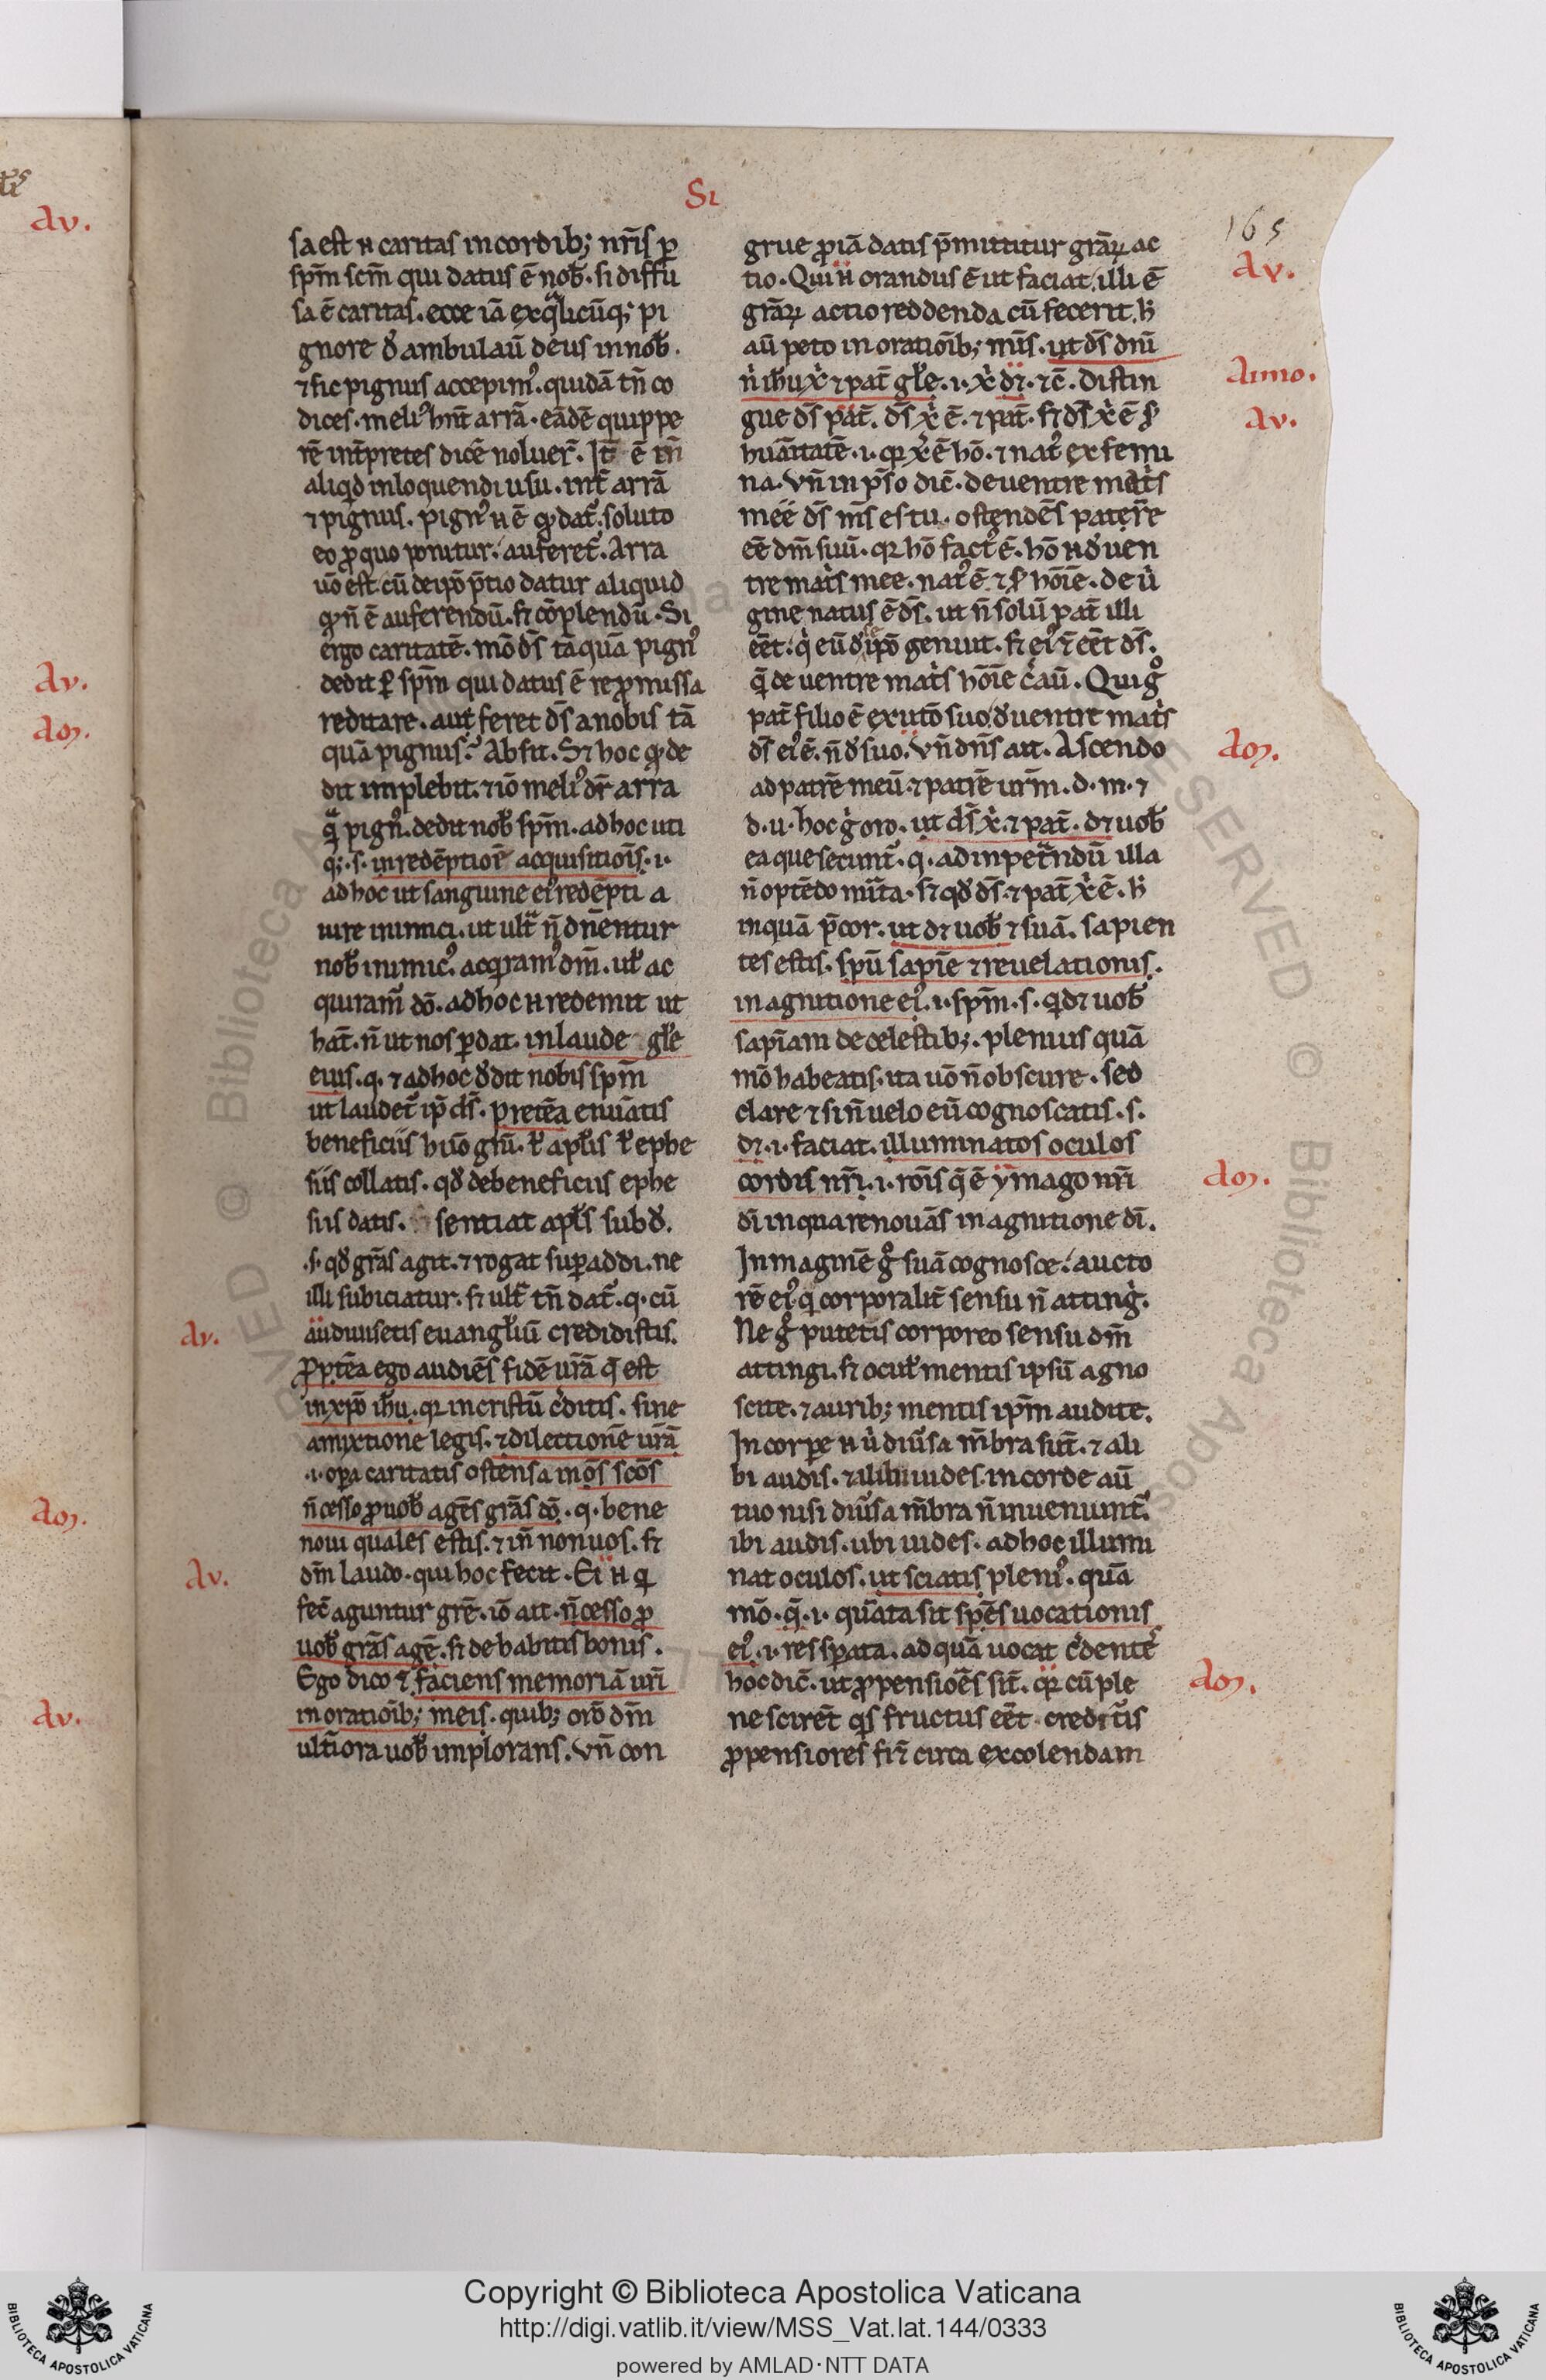 Si
165
sa est n̄ caritas in cordib; nr̄is ꝑ
sp̄m scm̄ qui datus ē nob̄. si diffu
sa ē caritas. ecce iā ex qͣlicūq; pi
gnore deambulau̅ deus in nob̄.
⁊ sic pignus accepim᾽. quidā tn̄ co
dices. meli᾽ hn̄t arrā. eādē quippe
rē int̄pretes dicē noluer̄. Int̄ ē tn̄
aliqd in loquendi usu. int̄ arrā
⁊ pignus. pign᾽ n̄ ē qd dat᾽. soluto
eo ꝓ quo ponitur. auferet᾽. Arra
uō est cū de ipō p̄tio datur aliquid
qd n̄ ē auferendū. s; cōplendū. Si
ergo caritatē. mō ds̄ tāquā pign᾽
dedit ꝑ sp̄m qui datus ē re ꝓmissa
reditare. auferet ds̄ a nobis tā
quā pignus? Absit. S; hoc qd de
dit implebit. ⁊ iō meli᾽ dr̄ arra
qͣ pign᾽. dedit nob̄ sp̄m. ad hoc uti
q;. s. in redēptionē acquisitiōis. i.
ad hoc ut sanguine ei᾽ redēpti a
iure inimici. ut ultͣ n̄ dn̄entur
nob̄ inimic᾽. acqiram᾽ dm̄. ul̄ ac
quiram᾽ dō. ad hoc n̄ redemit ut
hāt. n̄ ut nos ꝑdat. in laude gl̄e
eius. q. ⁊ ad hoc dedit nobis sp̄m
ut laudet᾽ ip̄e ds̄. pretēa enūatis
beneficiis huō gn̄. ul̄ apl̄is ul̄ ephe
siis collatis. qd de beneficiis ephe
siis datis. sentiat apl̄s subd̄.
.s. qd gr̄as agit. ⁊ rogat suꝑaddi. ne
illi subiciatur. s; ult᾽ tn̄ dat᾽. q. cū
audiuissetis euangl̄iū credidistis.
Ꝓptēa ego audiēs fidē ur̄ā q̄ est
in xp̄o ih̄u. qr in cristū cͥditis. sine
amixtione legis. ⁊ dilectionē ur̄ā
.i. oꝑa caritatis ostensa in oēs scōs
n̄ cesso ꝓ uob̄ agēs gr̄as dō. q. bene
noui quales estis. ⁊ in̄ non uos. s;
dm̄ laudo. qui hoc fecit. Ei n̄ qd
fec̄ aguntur gr̄e. iō ait. n̄ cesso ꝓ
uob̄ gr̄as agē. s; de habitis bonis.
Ego dico ⁊ faciens memoriā ur̄i
in oratiōib; meis. quib; orō dm̄
ult᾽iora uob̄ implorans. Vn̄ con
grue ꝓ iā datis p̄mittitur gr̄aꝝ ac
tio. Qui n̄ orandus ē ut faciat, illi ē
gr̄aꝝ actio reddenda cū fecerit. h̄
au̅ peto in oratiōib; mīs. ut ds̄ dn̄i
n̄i ih̄u xͥ ⁊ pat̄ gl̄e. i. xͥ di. ⁊c̄. distin
gue ds̄ pat̄. ds̄ xͥ ē. ⁊ pat̄. s; ds̄ xͥ ē s̄
humānitatē. i. qr xͥ ē hō. ⁊ nat᾽ ex femi
na. Vn̄ in pso dic̄. de uentre mat̄s
mēe ds̄ m̄s es tu. ostendēs patere
eē dm̄ suū. qr hō fact᾽ ē. hō n̄ de uen
tre mat̄s mee. nat᾽ ē ⁊ s̄ hōiē. de ū
gine natus ē ds̄. ut n̄ solū pat̄ illi
eēt. qͥ eū de ipō genuit. s; ei᾽ ⁊ eēt ds̄.
qͥ de uentre mat̄s hōiē cͥau̅. Qui gͦ
pat̄ filio ē ex utō suo. de uentre mat̄s
ds̄ ei᾽ ē. n̄ de suo. Vn̄ dn̄s ait. Ascendo
ad patrē meū. ⁊ patrē ur̄m. d. m. ⁊
d. u. hoc gͥ oro. ut ds̄ xͥ. ⁊ pat̄. det uob̄
ea que secunt᾽. q. ad inpetͣndū illa
n̄ optēdo m̄ita. s; qd ds̄. ⁊ pat̄ xͥ ē. h̄
inquā p̄cor. ut det uob̄ ⁊ suā. sapien
tes estis. spū sapīe ⁊ reuelationis.
in agnitione ei᾽. i. sp̄m. s. qi det uob̄
sapīam de celestib;. plenius quā
mō habeatis. ita uō n̄ obscure. sed
clare ⁊ sin̄ uelo eū cognoscatis. s.
det. i. faciat. illuminatos oculos
cordis nr̄i. i. rōis q̄ ē ymago nr̄i
di in qua renouās in agnitione di.
In imaginē gͦ suā cognosce. aucto
rē ei᾽ qͥ corporalit̄ sensu n̄ attingͥ.
Ne gͦ putetis corporeo sensu dm̄
attingi. s; ocul̄ mentis ipsū agno
scite. ⁊ aurib; mentis ip̄m audite.
In corꝑe n̄ ū diūsa m̄bra sūt. ⁊ ali
bi audis. ⁊ alibi uides. in corde au̅
tuo nisi diūsa m̄bra n̄ inueniunt᾽.
ibi audis. ubi uides. ad hoc illumi
nat oculos. ut sciatis pleni᾽. quā
mō. q̄. i. qūata sit spēs uocationis
ei᾽. i. res sꝑata. ad quā uocat cͥdentē
hoc dic̄. ut ꝓpensiōēs sīt. qr cū ple
ne scirēt qs fructus eēt credētis
ꝓpensiores fiēt circa excolendam
av.
av.
do᷒.
av.
do᷒.
av.
av.
av.
Aimo.
av.
do᷒.
do᷒.
do᷒.
Copyright © Biblioteca Apostolica Vaticana
http://digi.vatlib.it/view/MSS_Vat.lat.144/0333
powered by AMLAD·NTT DATA
BIBLIOTECA APOSTOLICA VATICANA
BIBLIOTECA APOSTOLICA VATICANA